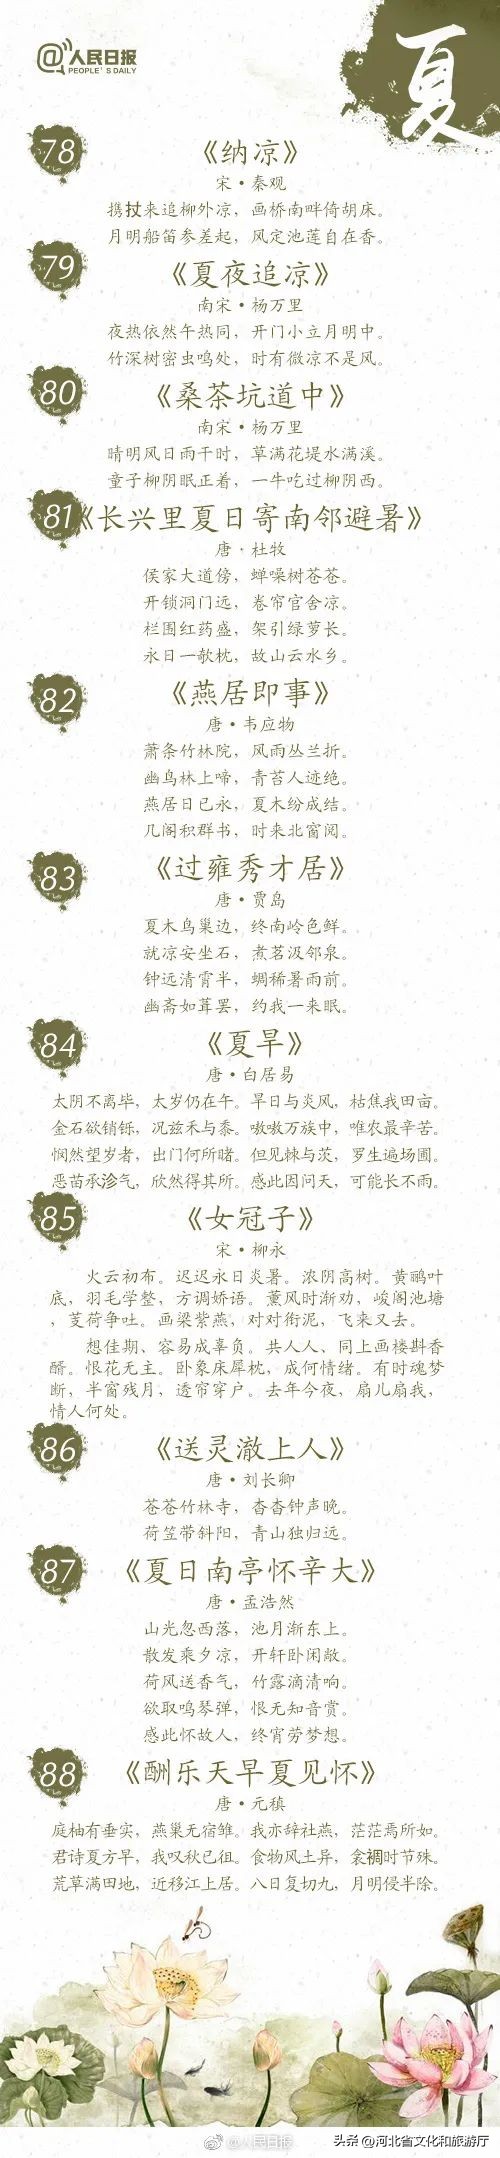 @人民日报
PEOPLE'S DAILY
夏
78
《纳凉》
宋·秦观
携扙来追柳外凉，画桥南畔倚胡床。
月明船笛参差起，风定池莲自在香。
79
《夏夜追凉》
南宋·杨万里
夜热依然午热同，开门小立月明中。
竹深树密虫鸣处，时有微凉不是风。
80
《桑茶坑道中》
南宋·杨万里
晴明风日雨干时，草满花堤水满溪。
童子柳阴眠正着，一牛吃过柳阴西。
81《长兴里夏日寄南邻避暑》
唐·杜牧
侯家大道傍，蝉噪树苍苍。
开锁洞门远，卷帘官舍凉。
栏围红药盛，架引绿萝长。
永日一欹枕，故山云水乡。
82
《燕居即事》
唐·韦应物
萧条竹林院，风雨丛兰折。
幽鸟林上啼，青苔人迹绝。
燕居日已永，夏木纷成结。
几阁积群书，时来北窗阅。
83
《过雍秀才居》
唐·贾岛
夏木鸟巢边，终南岭色鲜。
就凉安坐石，煮茗汲邻泉。
钟远清霄半，蜩稀暑雨前。
幽斋如葺罢，约我一来眠。
84
《夏旱》
唐·白居易
太阴不离毕，太岁仍在午。旱日与炎风，枯焦我田亩。
金石欲销铄，况兹禾与黍。嗷嗷万族中，唯农最辛苦。
悯然望岁者，出门何所睹。但见棘与茨，罗生遍场圃。
恶苗承沴气，欣然得其所。感此因问天，可能长不雨。
85
《女冠子》
宋·柳永
火云初布。迟迟永日炎暑。浓阴高树。黄鹂叶
底，羽毛学整，方调娇语。薰风时渐劝，峻阁池塘
，芰荷争吐。画梁紫燕，对对衔泥，飞来又去。
想佳期、容易成辜负。共人人、同上画楼斟香
醑。恨花无主。卧象床犀枕，成何情绪。有时魂梦
断，半窗残月，透帘穿户。去年今夜，扇儿扇我，
情人何处。
86
《送灵澈上人》
唐·刘长卿
苍苍竹林寺，杳杳钟声晚。
荷笠带斜阳，青山独归远。
87
《夏日南亭怀辛大》
唐·孟浩然
山光忽西落，池月渐东上。
散发乘夕凉，开轩卧闲敞。
荷风送香气，竹露滴清响。
欲取鸣琴弹，恨无知音赏。
感此怀故人，终宵劳梦想。
88
《酬乐天早夏见怀》
唐·元稹
庭柚有垂实，燕巢无宿雏。我亦辞社燕，茫茫焉所如。
君诗夏方早，我叹秋已徂。食物风土异，衾裯时节殊。
荒草满田地，近移江上居。八日复切九，月明侵半除。
@人民日报
头条 @河北省文化和旅游厅